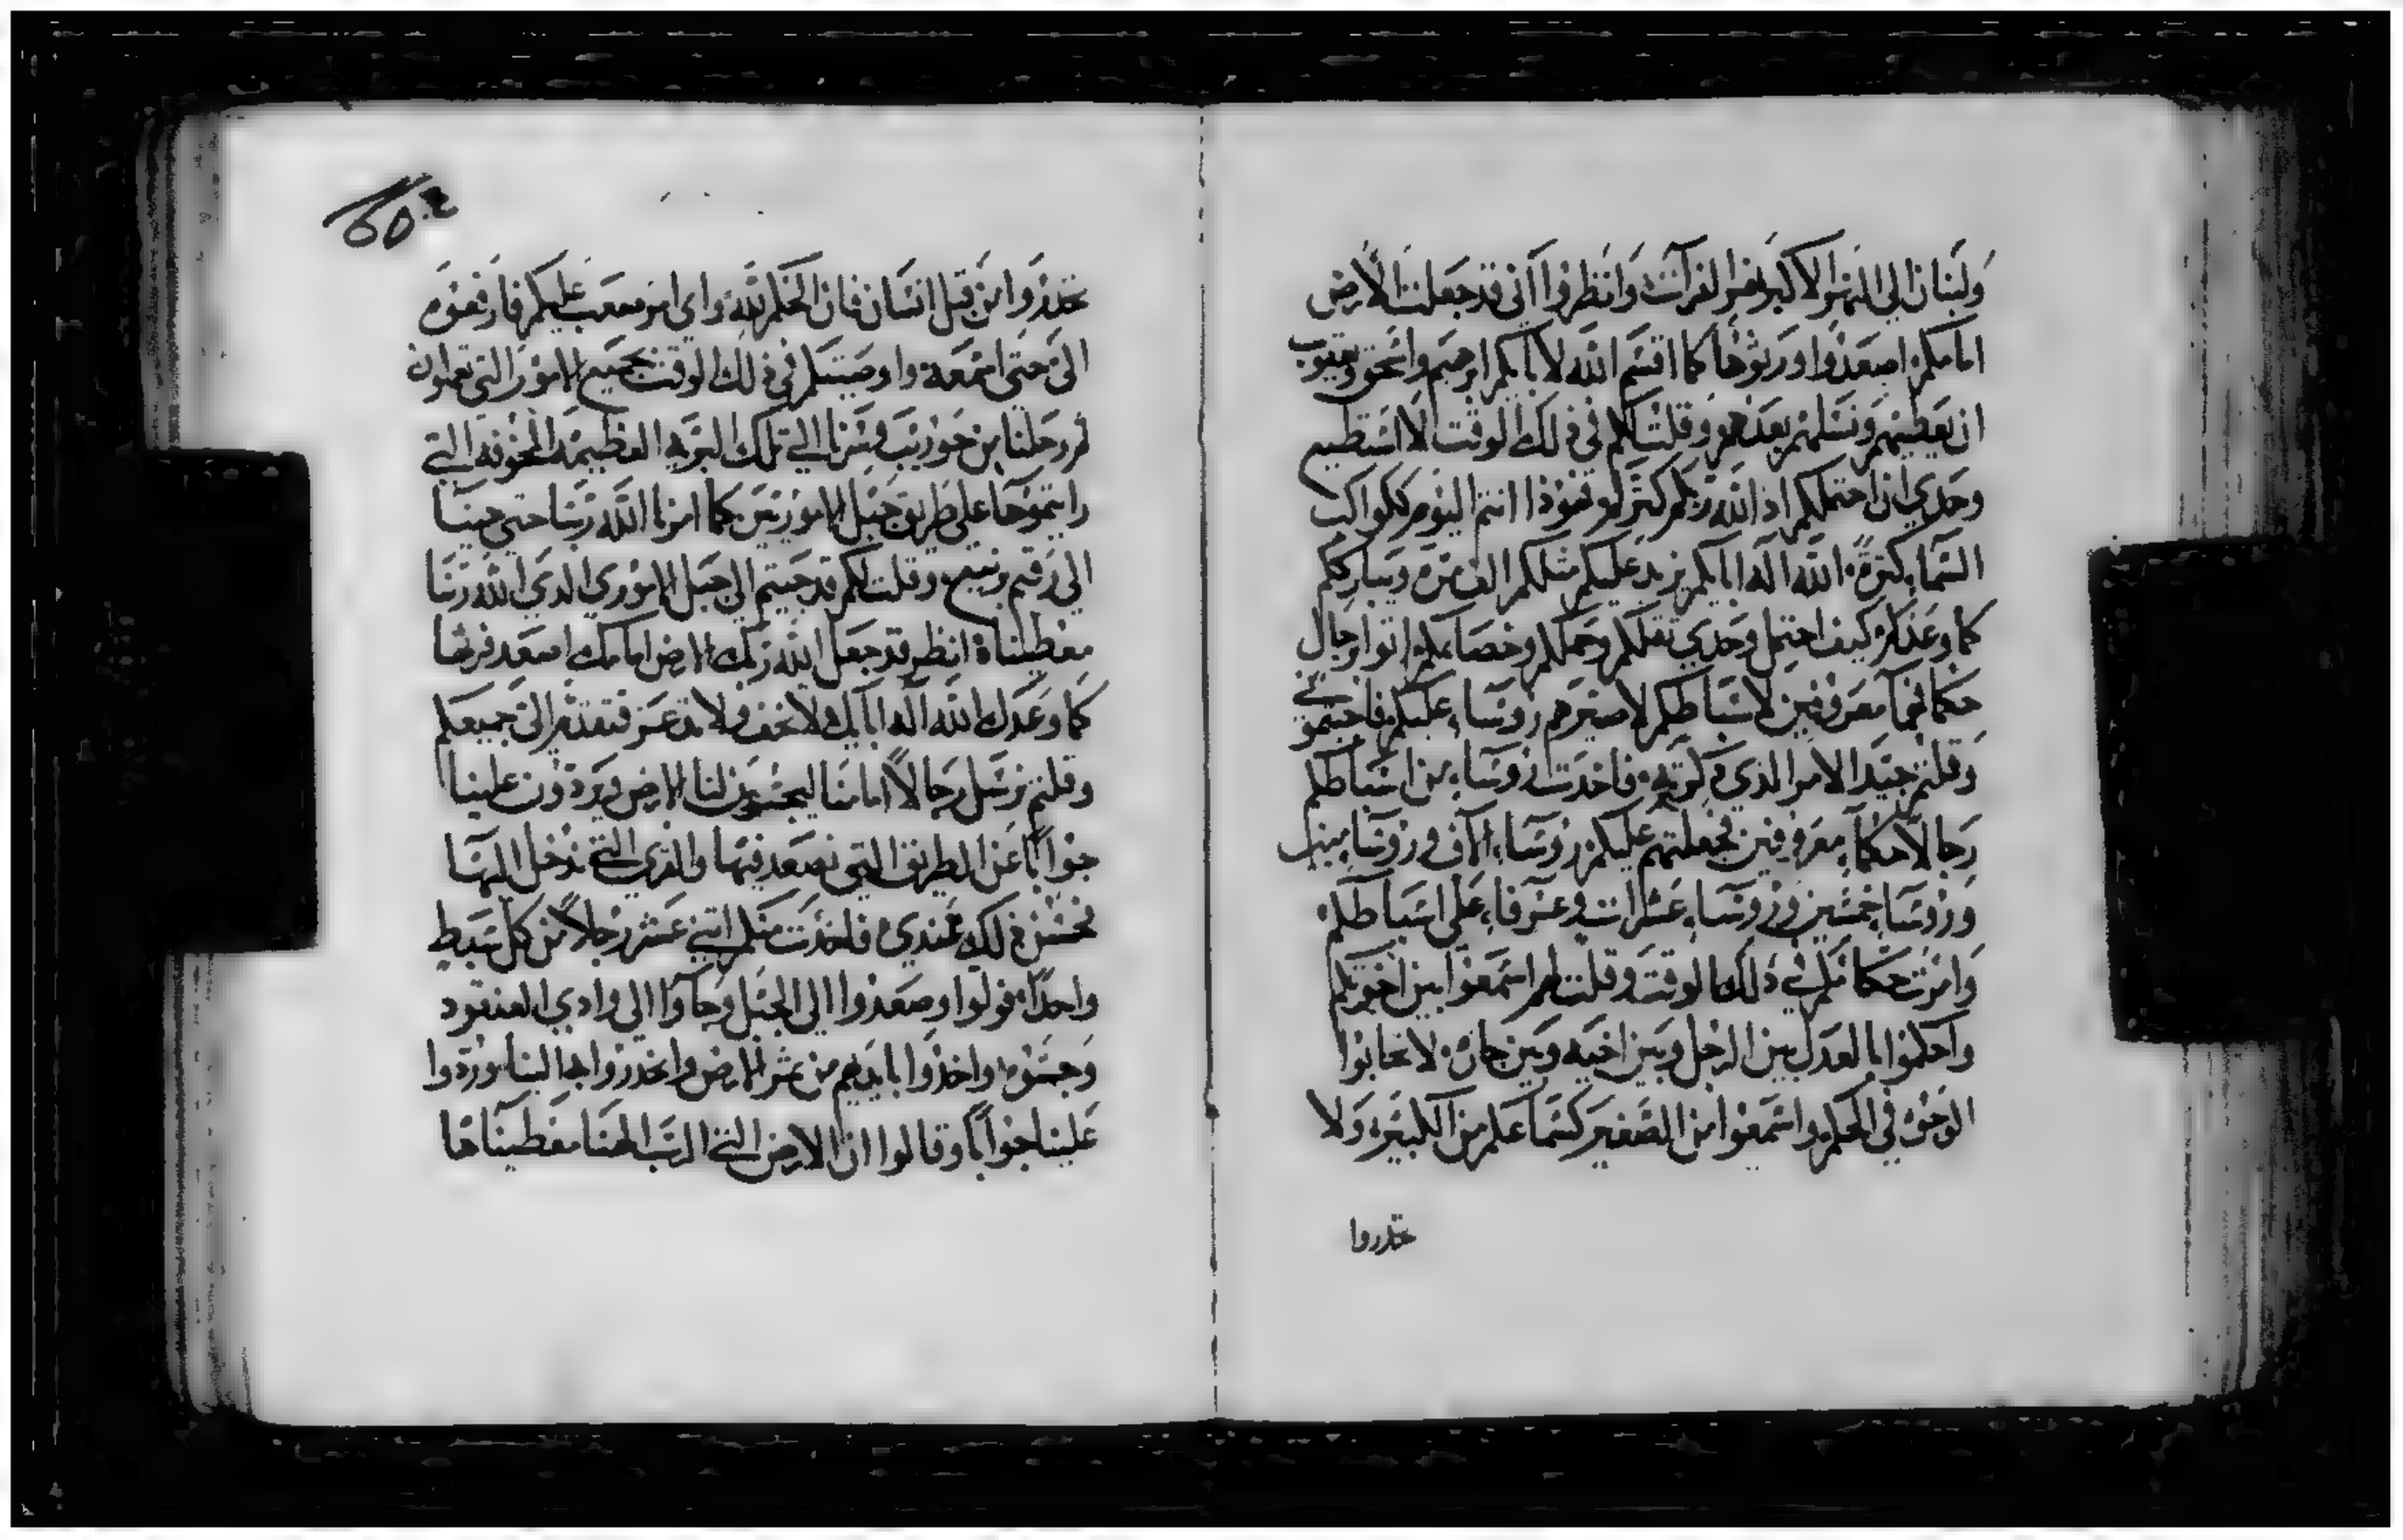 ولبنان الي النهر الاكبر نهر الفرات وانظروا اني قد جعلت الارض
امامكم اصعدوا ورثوها كما اقسم الله لابايكم ابرهيم واسحق ويعقوب
ان يعطيهم ونسلهم بعدهم وقلت لكم في ذلك الوقت لا استطيع
وحدي ان احتملكم اذ الله ربكم كثركم وهوذا انتم اليوم ككواكب
السماء كثرة الله اله ابايكم يزيد عليكم مثلكم الف مرة ويبارككم
كما وعدكم كيف احتمل وحدي ثقلكم وحملكم وخصامكم اتوا رجال
حكما فهما معروفين لاسباطكم لاصيرهم روسا عليكم فاجبتموني
وقلتم جيدا الامر الذي ذكرته فاخدت روسا من اسباطكم
رجالا حكما معروفين فجعلتهم عليكم روسا الاف وروسا ميين
وروسا خمسين وروسا عشرات وعرفا على اسباطكم
وامرت حكامكم في ذلك الوقت وقلت لهم اسمعوا بين اخوتكم
واحكموا بالعدل بين الرجل وبين اخيه وبين جاره لا تحابوا
الوجوه في الحكم واسمعوا من الصغير كسماعكم من الكبير ولا
تحدروا
60
تحدروا من قبل انسان فان الحكم لله واي امر صعب عليكم فارفعوه
الي حتى اسمعه واوصيتكم في ذلك الوقت بجميع الامور التي تعملون
ثم رحلنا من حوريب وسرنا الي تلك البرية العظيمة المخوفة التي
رايتموها على طريق جبل الامورين كما امرنا الله ربنا حتى جينا
الي رقم برنيع وقلت لكم قد جيتم الي جبل الاموري الدي الله ربنا
معطيناه انظر قد جعل الله ربك الارض امامك اصعد فرثها
كما وعدك الله اله ابايك لا تخف ولا تدعر فتقدم الي جميعكم
وقلتم نرسل رجالا امامنا ليجسون لنا الارض ويردون علينا
جوابا عن الطريق التي نصعد فيها والقري التي ندخل اليها
فحسن ذلك عندي فاخدت منكم اتني عشر رجلا من كل سبط
واحدا فولوا وصعدوا الي الجبل وجاوا الي وادي العنقود
وجسوه واخذوا بايديهم من ثمر الارض وانحدروا بها الينا وردوا
علينا جوابا وقالوا ان الارض التي الرب الهنا معطيناها